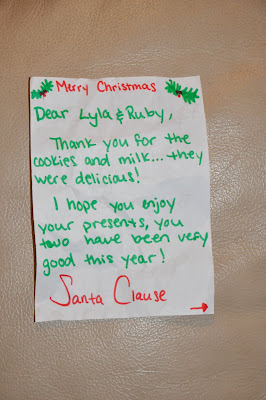 Merry Christmas
Dear Lyla & Ruby,
Thank you for the
cookies and milk... they
were delicious!
I hope you enjoy
your presents, you
two have been very
good this year!
Santa Clause